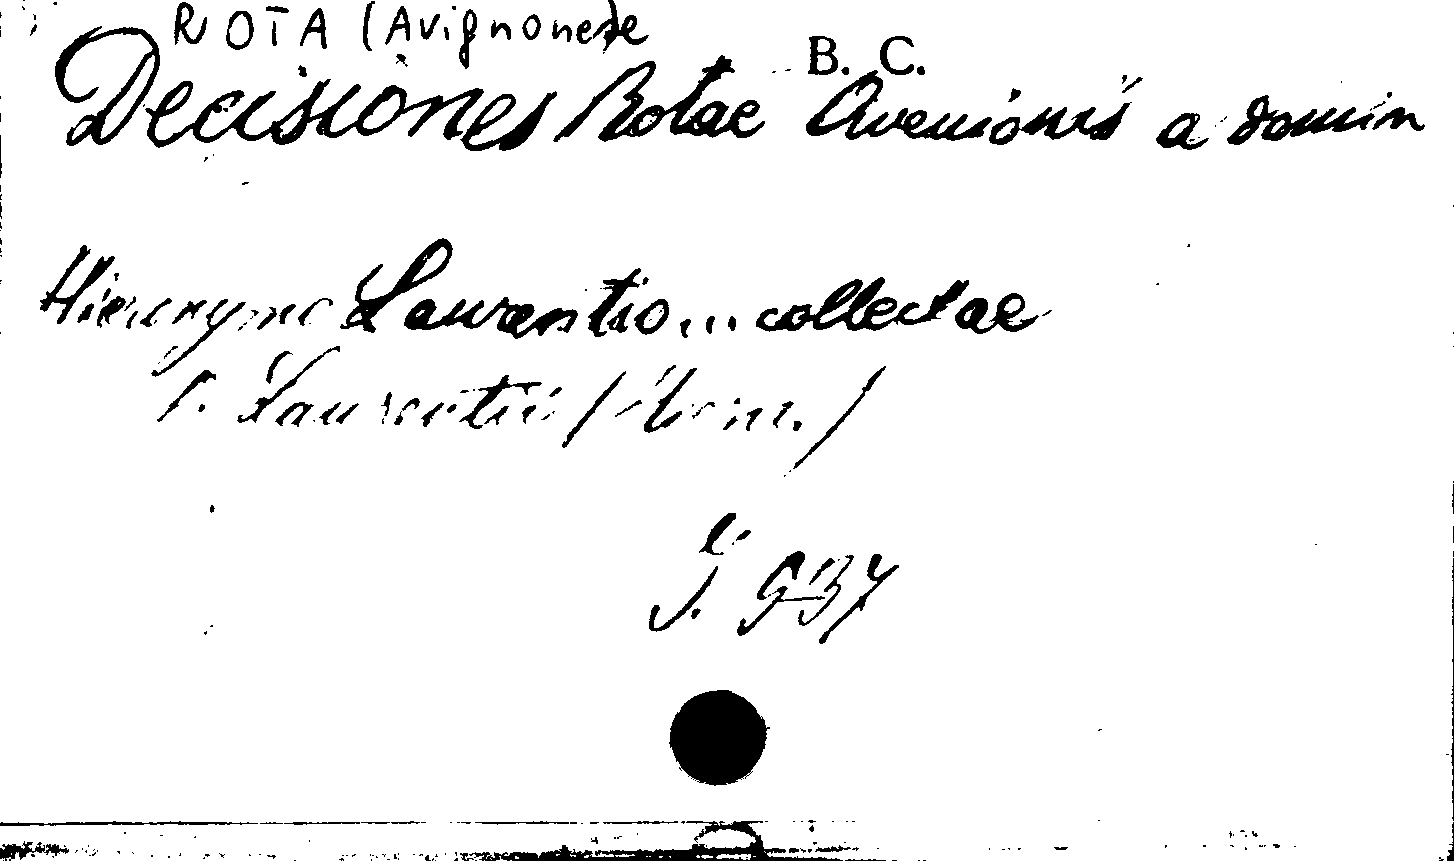 ROTA (Avignonese
B. C.
Decisiones Rotae Avenionis a domin
Hieronymo Laurentio... collectae
v. Laurentii (Hieron.)
937